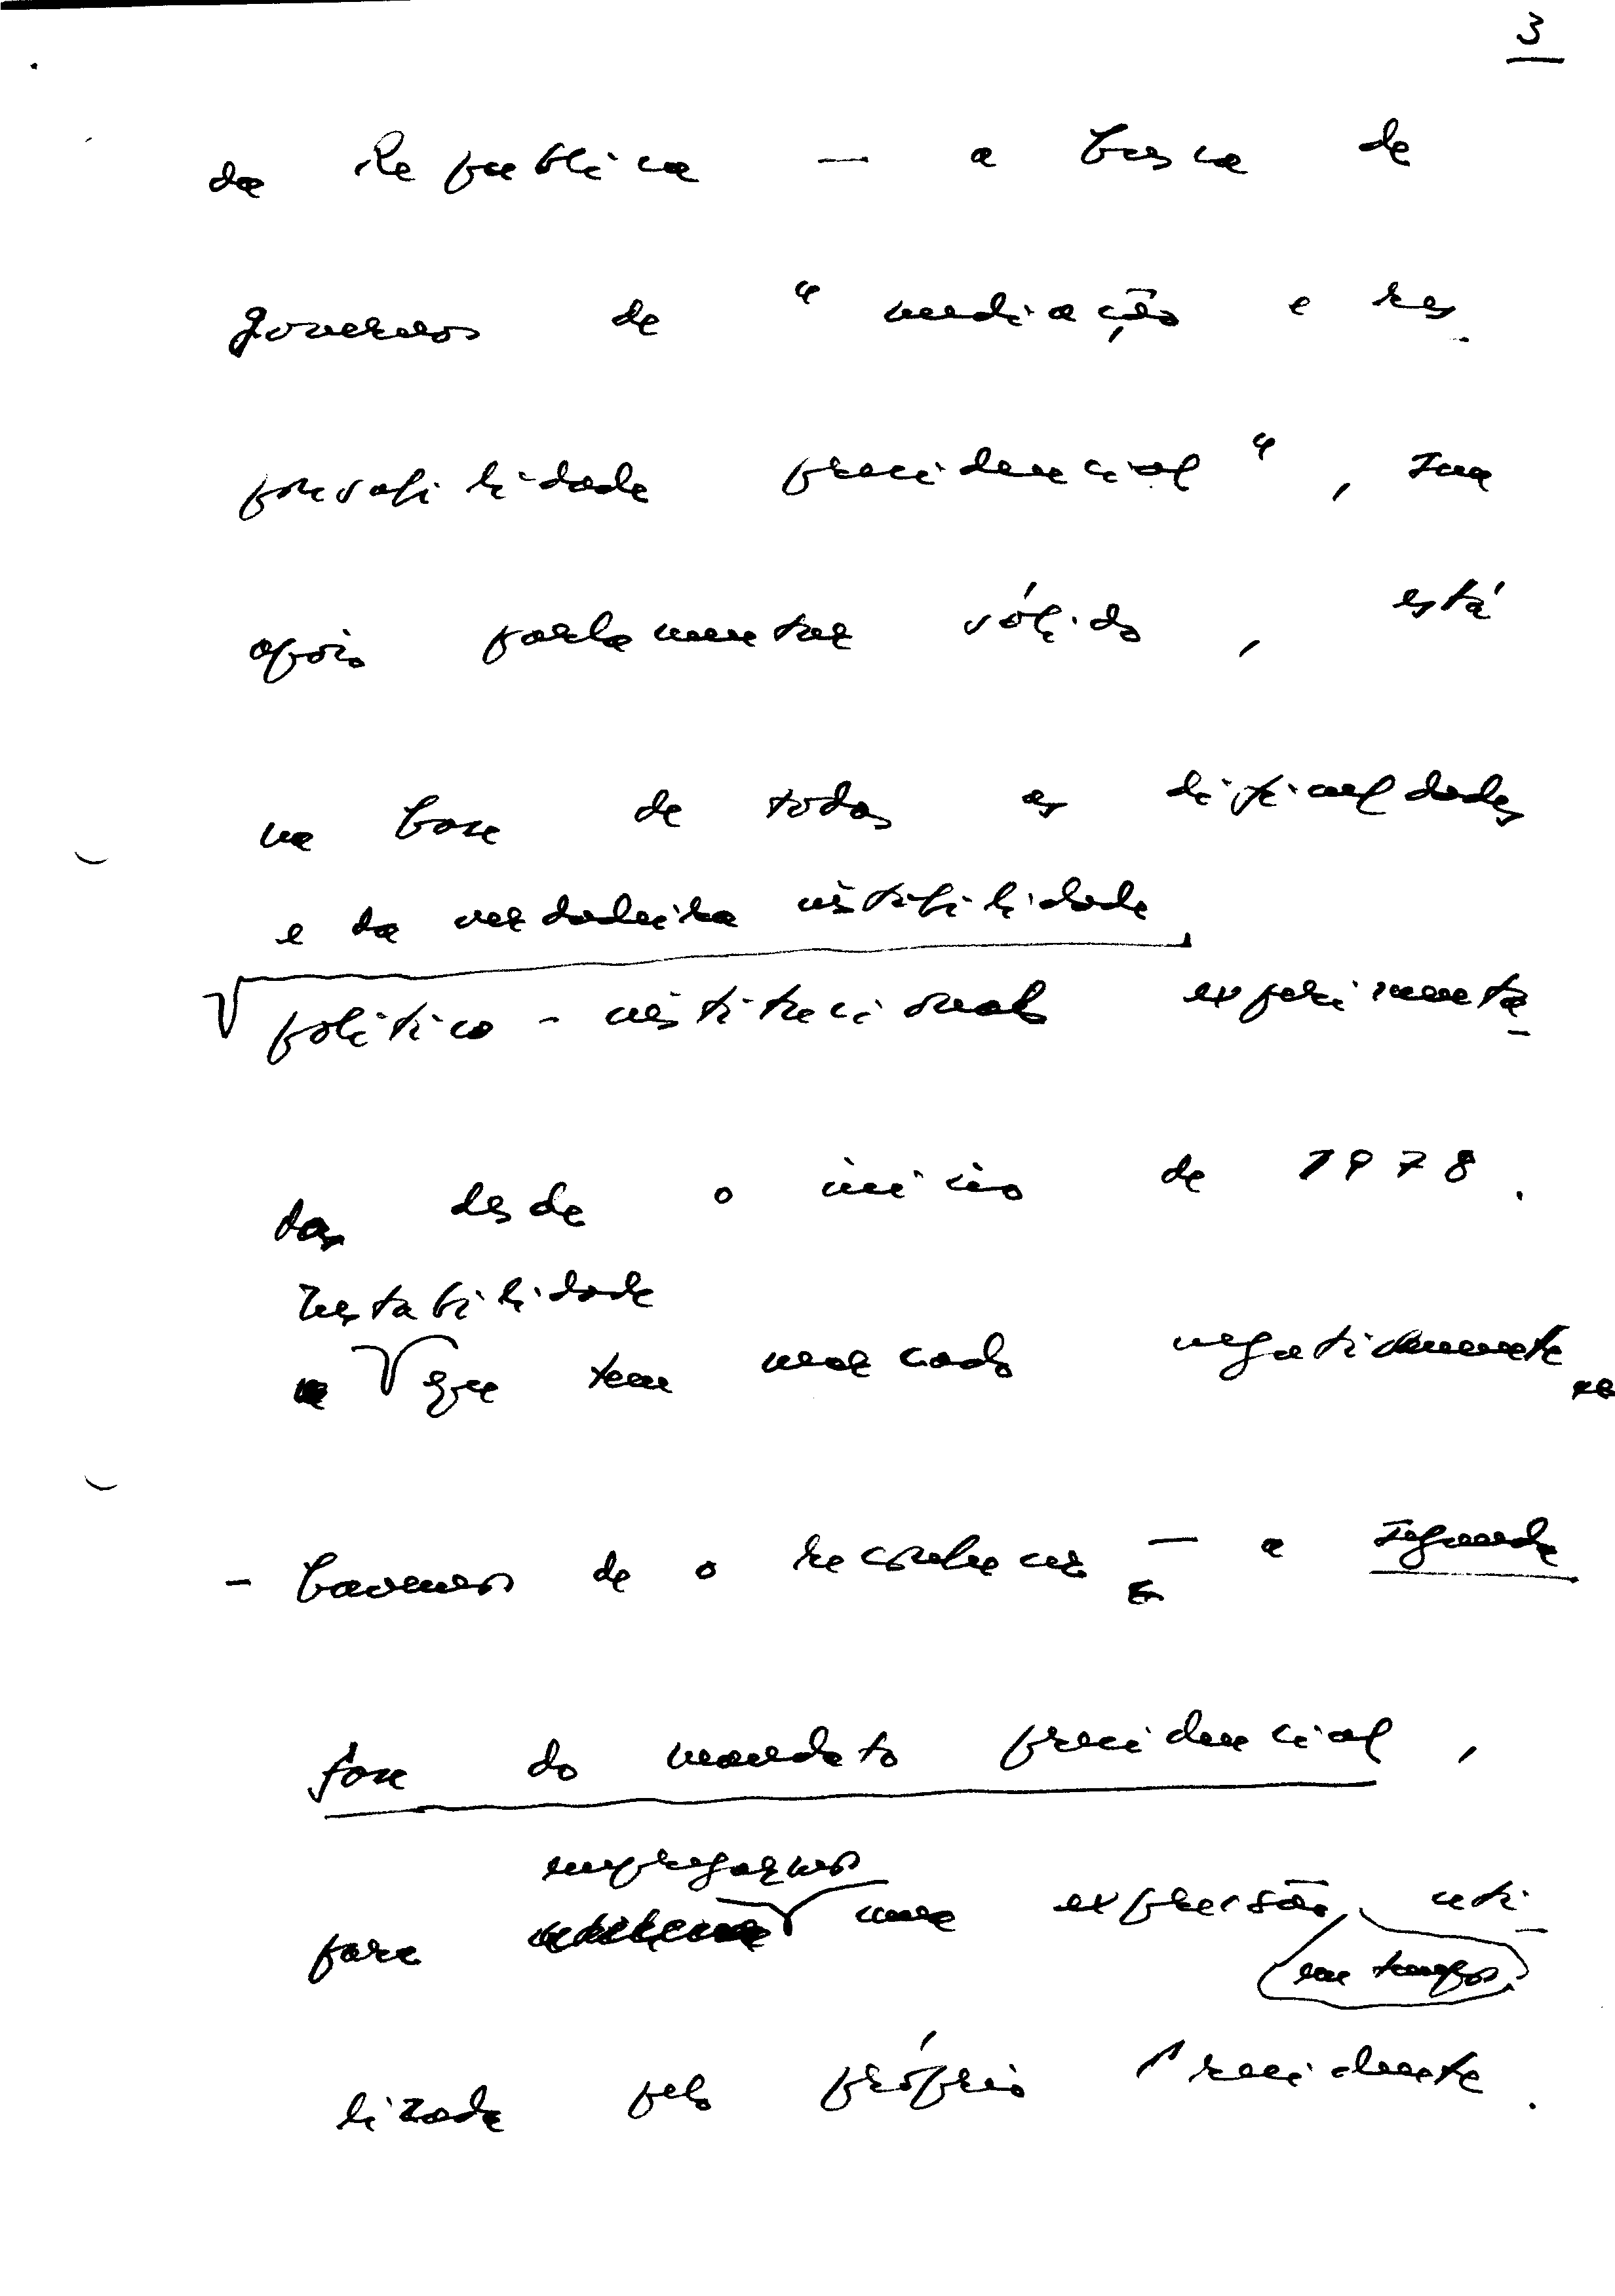 3
da Republica — a busca de
governos de " mediação e res-
ponsabilidade presidencial " , sem
apoio parlamentar sólido , está
na base de todas as dificuldades
e da verdadeira instabilidade
político - institucional experimenta-
das desde o início de 1978 .
Instabilidade
que tem marcado negativamente
- havemos de o reconhecer - a segunda
fase do mandato presidencial ,
empregarmos
para uma expressão, uti-
em tempos
lizada pelo próprio Presidente .